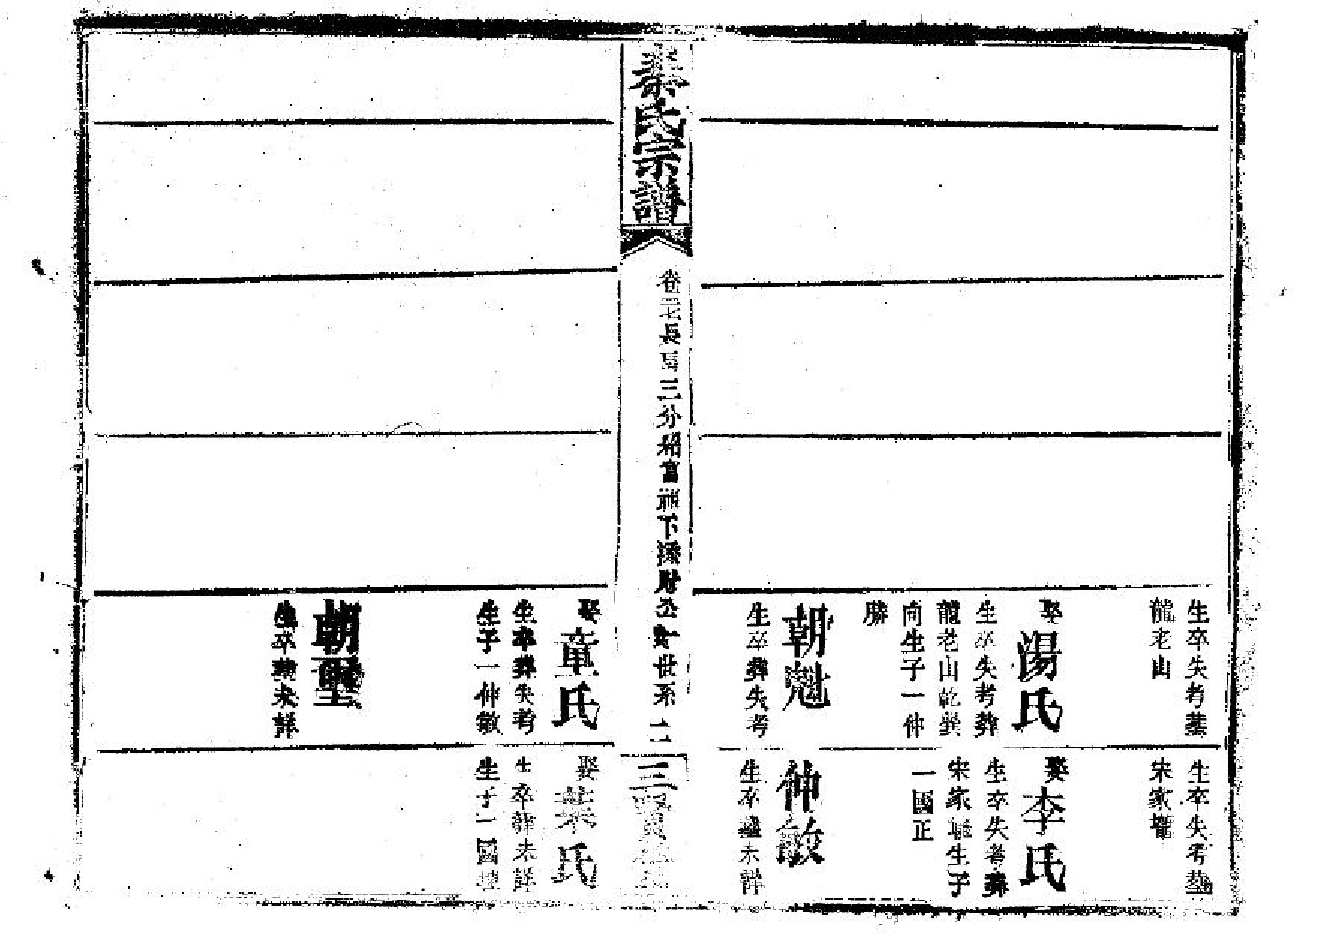 生卒失考葬
龍老山
娶湯氏
生卒失考葬
龍老山乾巽
向生子一仲
勝
朝魁
生卒葬失考
生卒失考葬
宋家壠
娶李氏
生卒失考葬
宋家壠生子
一國正
仲敏
生卒葬未詳
氏宗譜
長房三分紹富祖下
公世系
三
娶童氏
生卒葬失考
生子一仲敏
朝聖
生卒葬未詳
娶葉氏
生卒葬未詳
生子一國